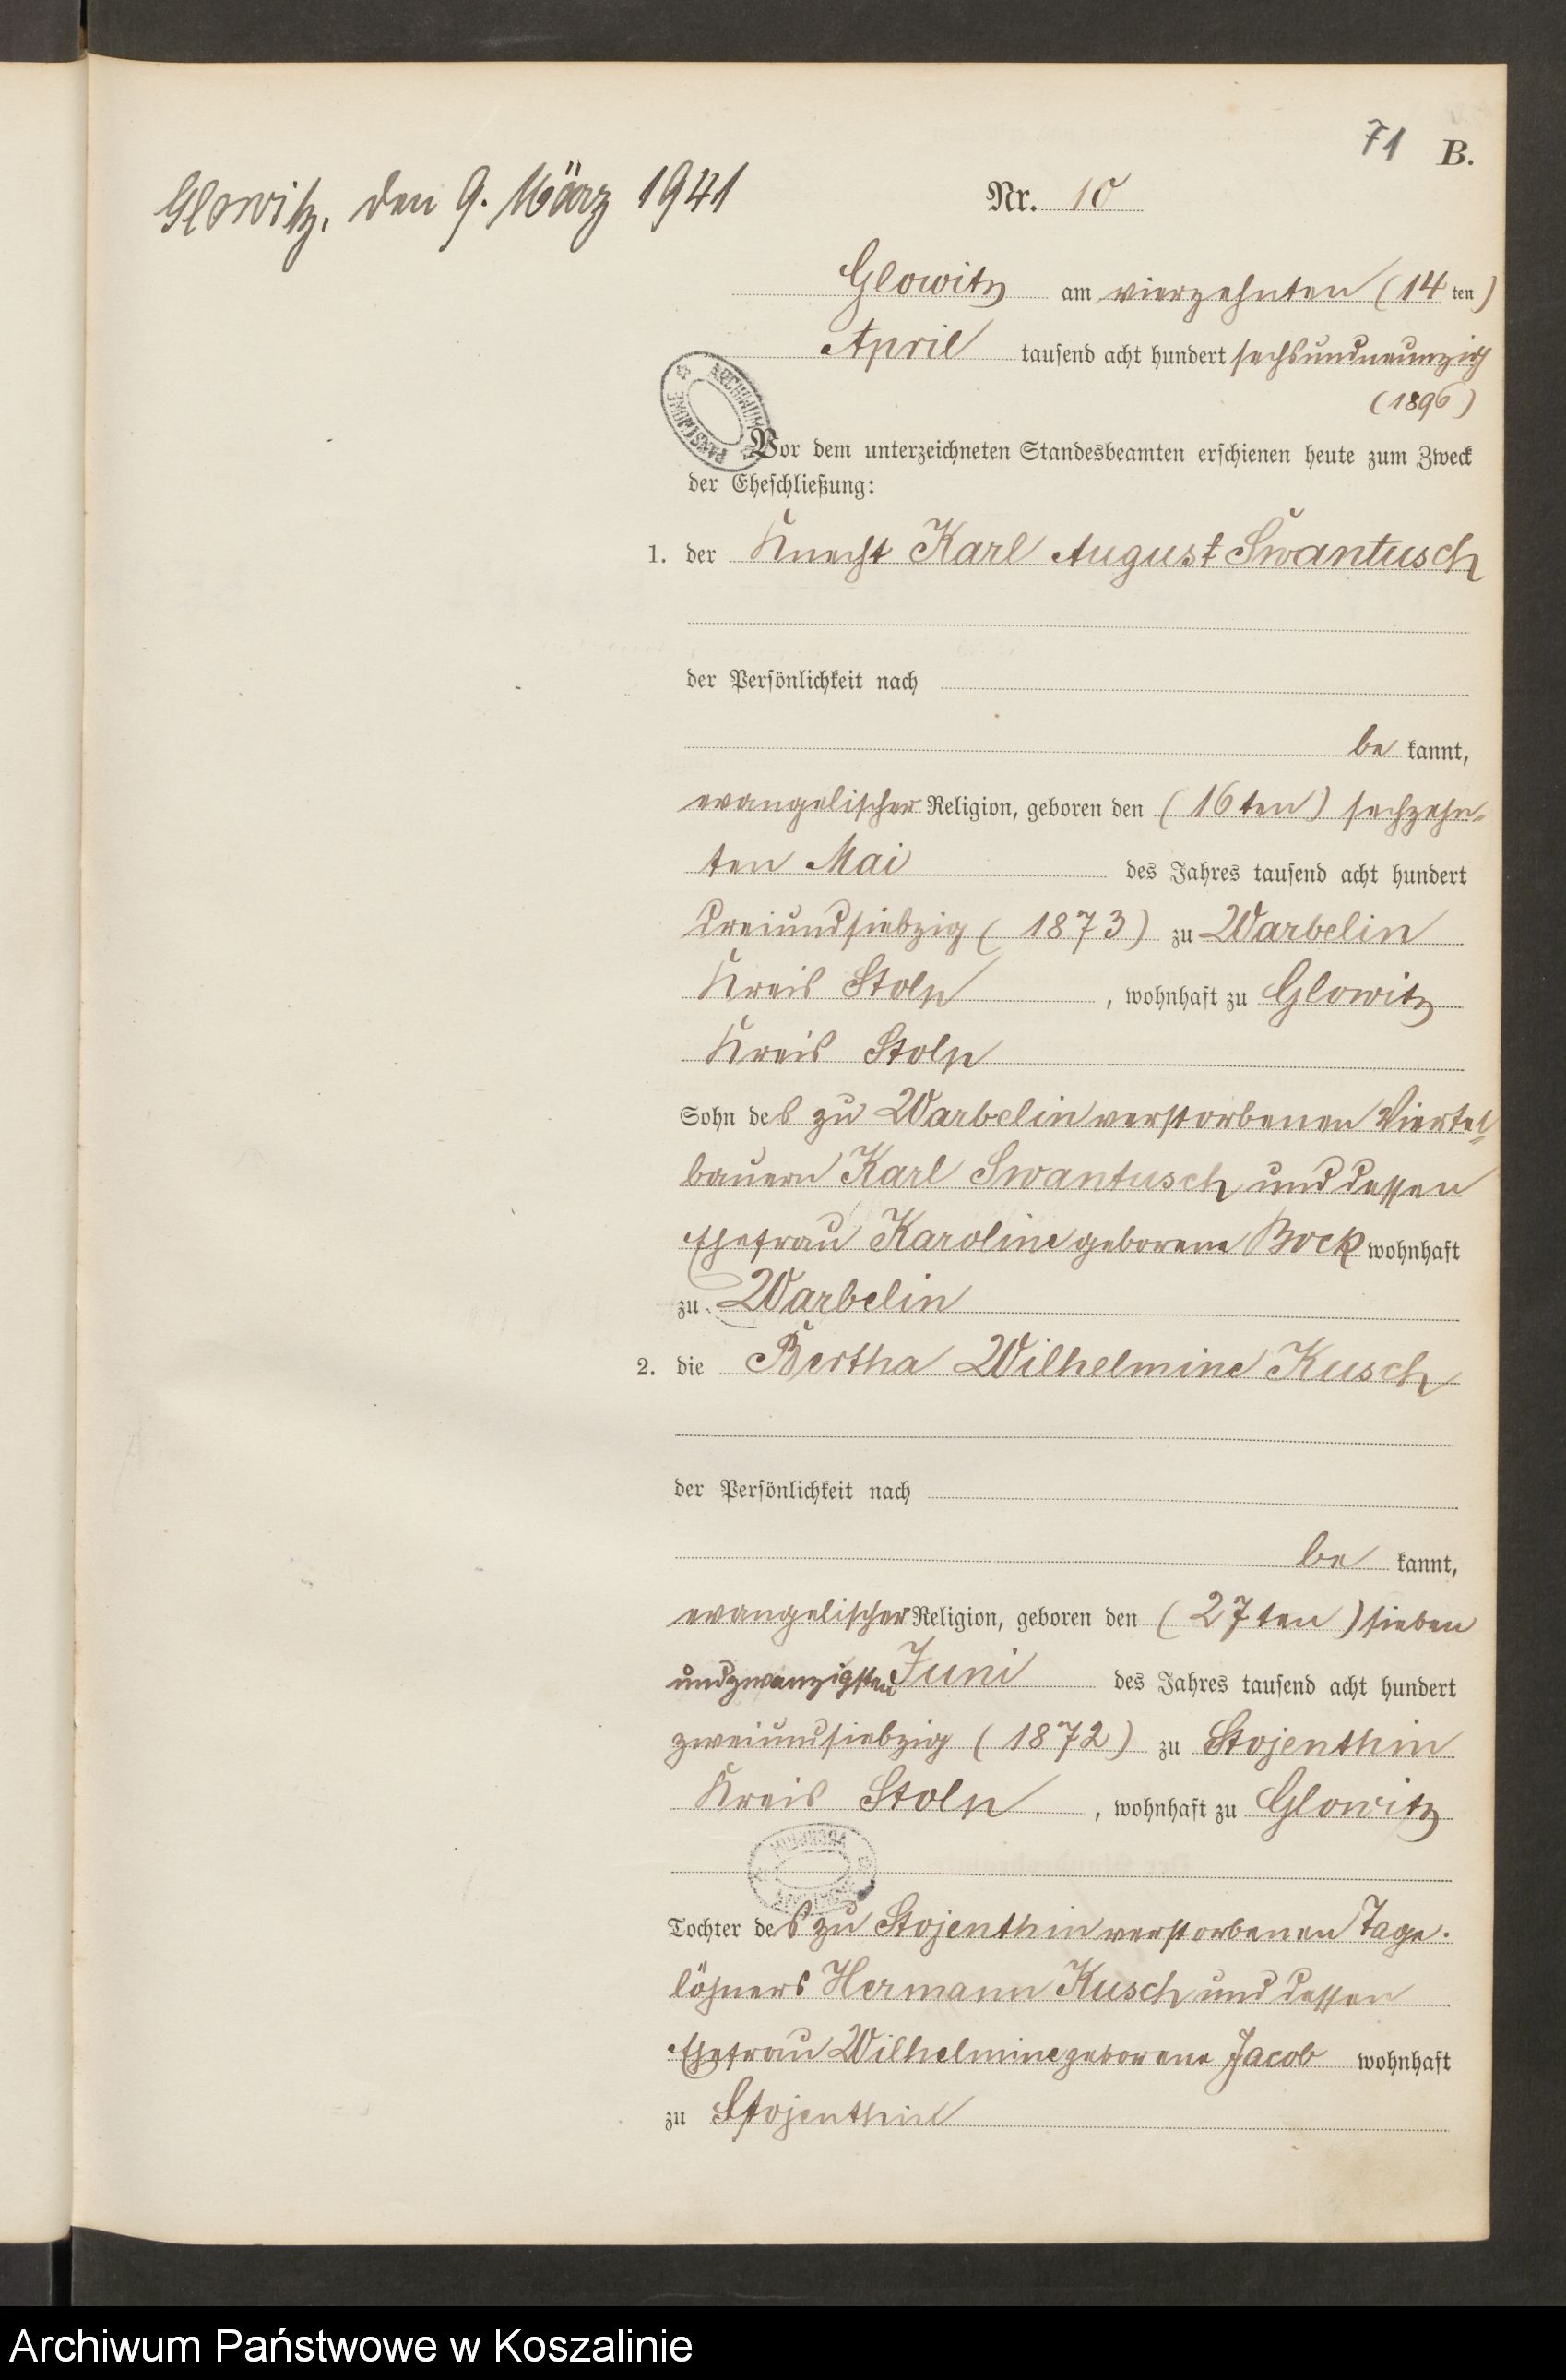 71 B.
Glowitz, den 9. März 1941
Nr. 10
Glowitz am vierzehnten (14 ten)
April tausend acht hundert sechsundneunzig
(1896)
Vor dem unterzeichneten Standesbeamten erschienen heute zum Zweck
der Eheschließung:
1. der Knecht Karl August Swantusch
der Persönlichkeit nach
be kannt,
evangelischer Religion, geboren den (16ten) sechzehn-
ten Mai des Jahres tausend acht hundert
dreiundsiebzig (1873) zu Warbelin
Kreis Stolp, wohnhaft zu Glowitz
Kreis Stolp
Sohn des zu Warbelin verstorbenen Viertel-
bauern Karl Swantusch und dessen
Ehefrau Karoline geborene Bock wohnhaft
zu Warbelin
2. die Bertha Wilhelmine Kusch
der Persönlichkeit nach
be kannt,
evangelischer Religion, geboren den (27ten) sieben
undzwanzigsten Juni des Jahres tausend acht hundert
zweiundsiebzig (1872) zu Stojenthin
Kreis Stolp, wohnhaft zu Glowitz
Tochter des zu Stojenthin verstorbenen Tage-
löhners Hermann Kusch und dessen
Ehefrau Wilhelmine geborene Jacob wohnhaft
zu Stojenthin
ARCHIWUM PAŃSTWOWE
Archiwum Państwowe w Koszalinie